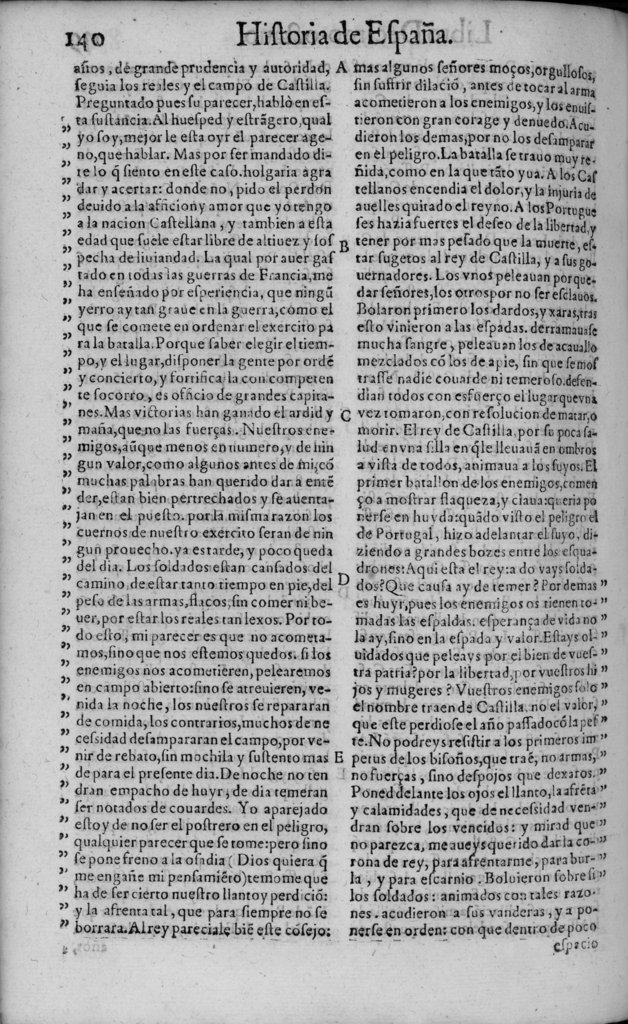 140
Historia de España.
años, de grande prudencia y autoridad,
seguia los reales y el campo de Castilla.
Preguntado pues su parecer, hablò en es-
ta sustãcia. Al huesped y estrãgero, qual
yo soy, mejor le esta oyr el parecer age-
no, que hablar. Mas por ser mandado di-
re lo q̃ siento en este caso. holgaria agra
dar y acertar: donde no, pido el perdon
deuido a la aficion y amor que yo tengo
a la nacion Castellana, y tambien a esta
edad que suele estar libre de altiuez y sos
pecha de liuiandad. La qual por auer gas
tado en todas las guerras de Francia, me
ha enseñado por esperiencia, que ningũ
yerro ay tan graue en la guerra, como el
que se comete en ordenar el exercito pa
ra la batalla. Porque saber elegir el tiem-
po, y el lugar, disponer la gente por ordẽ
y concierto, y fortificalla con competen
te socorro, es oficio de grandes capita-
nes. Mas victorias han ganado el ardid y
maña, que no las fuerças. Nuestros ene-
migos, aũque menos en numero, y de nin
gun valor, como algunos antes de mi, cõ
muchas palabras han querido dar a entẽ
der, estan bien pertrechados y se auenta-
jan en el puesto. por la misma razon los
cuernos de nuestro exercito seran de nin
gun prouecho. ya es tarde, y poco queda
del dia. Los soldados estan cansados del
camino, de estar tanto tiempo en pie, del
peso de las armas, flacos, sin comer ni be-
uer, por estar los reales tan lexos. Por to-
do esto, mi parecer es que no acometa-
mos, sino que nos estemos quedos. si los
enemigos nos acometieren, pelearemos
en campo abierto: sino se atreuieren, ve-
nida la noche, los nuestros se repararan
de comida, los contrarios, muchos de ne
cessidad desampararan el campo, por ve-
nir de rebato, sin mochila y sustento mas
de para el presente dia. De noche no ten
dran empacho de huyr, de dia temeran
ser notados de couardes. Yo aparejado
estoy de no ser el postrero en el peligro,
qualquier parecer que se tome: pero sino
se pone freno a la osadia (Dios quiera q̃
me engañe mi pensamiẽto) temome que
ha de ser cierto nuestro llanto y perdiciõ:
y la afrenta tal, que para siempre no se
borrara. Al rey pareciale biẽ este cõsejo:
A
B
C
D
E
mas algunos señores moços, orgullosos,
sin sufrir dilaciõ, antes de tocar al arma
acometieron a los enemigos, y los enuis-
tieron con gran corage y denuedo. Acu-
dieron los demas, por no los desamparar
en el peligro. La batalla se trauo muy re-
ñida, como en la que tãto yua. A los Cas
tellanos encendia el dolor, y la injuria de
auelles quitado el reyno. A los Portugue
ses hazia fuertes el deseo de la libertad, y
tener por mas pesado que la muerte, es-
tar sugetos al rey de Castilla, y a sus go-
uernadores. Los vnos peleauan por que-
dar señores, los otros por no ser esclauos.
Bolaron primero los dardos, y xaras, tras
esto vinieron a las espadas. derramauase
mucha sangre, peleauan los de acauallo
mezclados cõ los de apie, sin que se mos
trasse nadie couarde ni temeroso. defen-
dian todos con esfuerço el lugar que vna
vez tomaron, con resolucion de matar, o
morir. El rey de Castilla, por su poca sa-
lud en vna silla en q̃ le lleuauã en ombros
a vista de todos, animaua a los suyos. El
primer batallon de los enemigos, comen
ço a mostrar flaqueza, y ciaua: queria po
nerse en huyda: quãdo visto el peligro el
de Portugal, hizo adelantar el suyo, di-
ziendo a grandes bozes entre los esqua-
drones: Aqui esta el rey: a do vays solda-
dos? Que causa ay de temer? Por demas
es huyr, pues los enemigos os tienen to-
madas las espaldas. esperança de vida no
la ay, sino en la espada y valor. Estays ol-
uidados que peleays por el bien de vues-
tra patria? por la libertad, por vuestros hi
jos y mugeres? Vuestros enemigos solo
el nombre traen de Castilla, no el valor,
que este perdiose el año passado cõ la pes
te. No podreys resistir a los primeros im
petus de los bisoños, que traẽ, no armas,
no fuerças, sino despojos que dexaros.
Poned delante los ojos el llanto, la afrẽta
y calamidades, que de necessidad ven-
dran sobre los vencidos: y mirad que
no parezca, me aueys querido dar la co-
rona de rey, para afrentarme, para bur-
la, y para escarnio. Boluieron sobre si
los soldados: animados con tales razo-
nes. acudieron a sus vanderas, y a po-
nerse en orden: con que dentro de poco
espacio